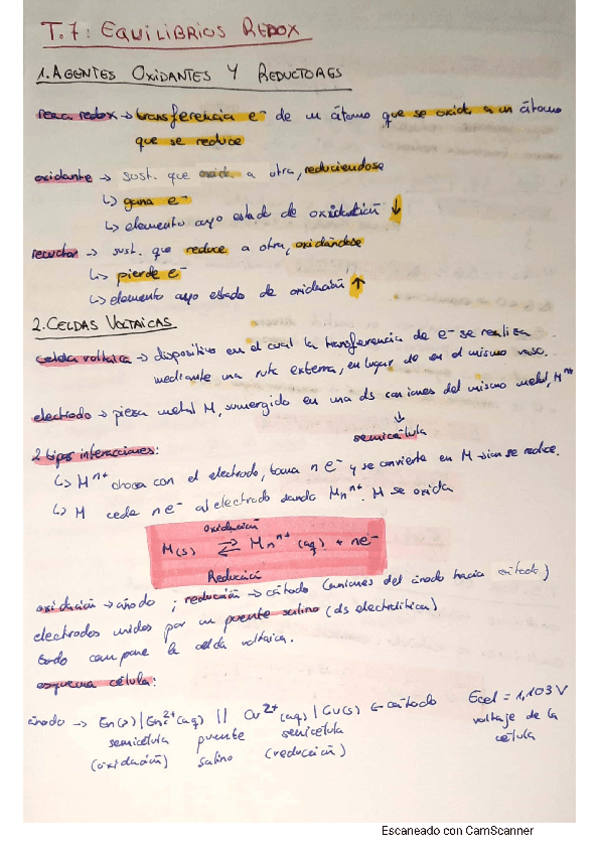 T.7: EQUILIBRIOS REDOX
1. AGENTES OXIDANTES Y REDUCTORES
reacc. redox → transferencia e⁻ de un átomo que se oxida a un átomo
que se reduce
oxidante → sust. que oxida a otra, reduciendose
↳ gana e⁻
↳ elemento cuyo estado de oxidación ↓
reductor → sust. que reduce a otra, oxidándose
↳ pierde e⁻
↳ elemento cuyo estado de oxidación ↑
2. CELDAS VOLTAICAS
celda voltaica → dispositivo en el cual la transferencia de e⁻ se realiza
mediante una ruta externa, en lugar de en el mismo vaso.
electrodo → pieza metal M, sumergido en una ds con iones del mismo metal, Mⁿ⁺
↓
semicélula
2 tipos interacciones:
↳ Mⁿ⁺ choca con el electrodo, toma n e⁻ y se convierte en M. ion se reduce.
↳ M cede n e⁻ al electrodo dando Mnⁿ⁺. M se oxida
Oxidación
M(s) ⇄ Mnⁿ⁺ (aq) + ne⁻
Reducción
oxidación → ánodo ; reducción → cátodo (aniones del ánodo hacia cátodo)
electrodos unidos por un puente salino (ds electrolítica)
todo compone la celda voltaica.
esquema célula:
ánodo → Zn(s) | Zn²⁺(aq) || Cu²⁺(aq) | Cu(s) ← cátodo Ecel = 1,103 V
semicélula puente semicélula voltaje de la
(oxidación) salino (reducción) célula
Escaneado con CamScanner